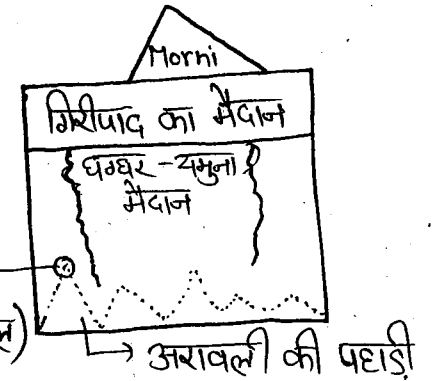 Morni
गिरीपाद का मैदान
घग्घर - यमुना
मैदान
ल)
→ अरावली की पहाड़ी